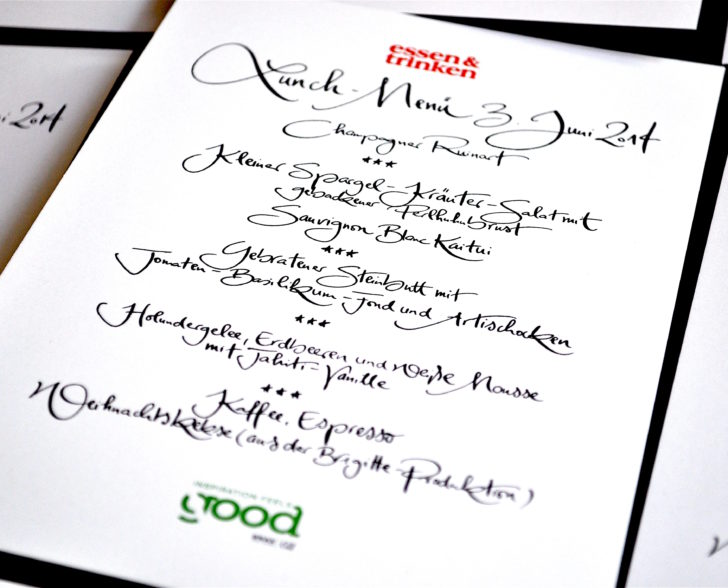 essen &
trinken
Lunch-Menü 3. Juni 2014
Champagner Ruinart
***
Kleiner Spargel-Kräuter-Salat mit
gebackener Perlhuhnbrust
Sauvignon Blanc Kaitui
***
Gebratener Steinbutt mit
Tomaten-Basilikum-Fond und Artischocken
***
Holundergelee, Erdbeeren und Weiße Mousse
mit Tahiti-Vanille
***
Kaffee, Espresso
Weihnachtskekse (aus der Brigitte-Produktion)
INSPIRATION
good
2014